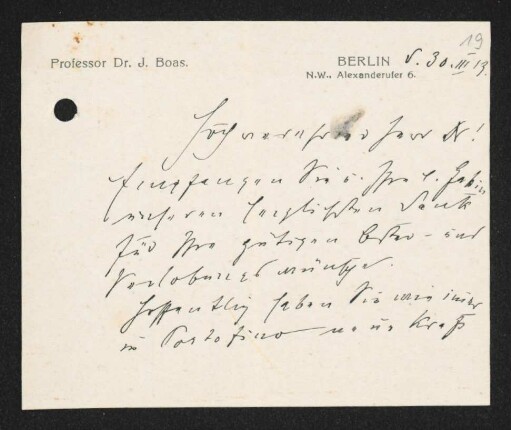 19
Professor Dr. J. Boas.
BERLIN d. 30. III 13.
N.W., Alexanderufer 6.
Hochverehrter Herr Dr!
Empfangen Sie u. Ihre l.
unseren herzlichsten Dank
für Ihre gütigen Oster- und
Verlobungswünsche.
Hoffentlich haben Sie wie immer
in Portofino neue Kraft